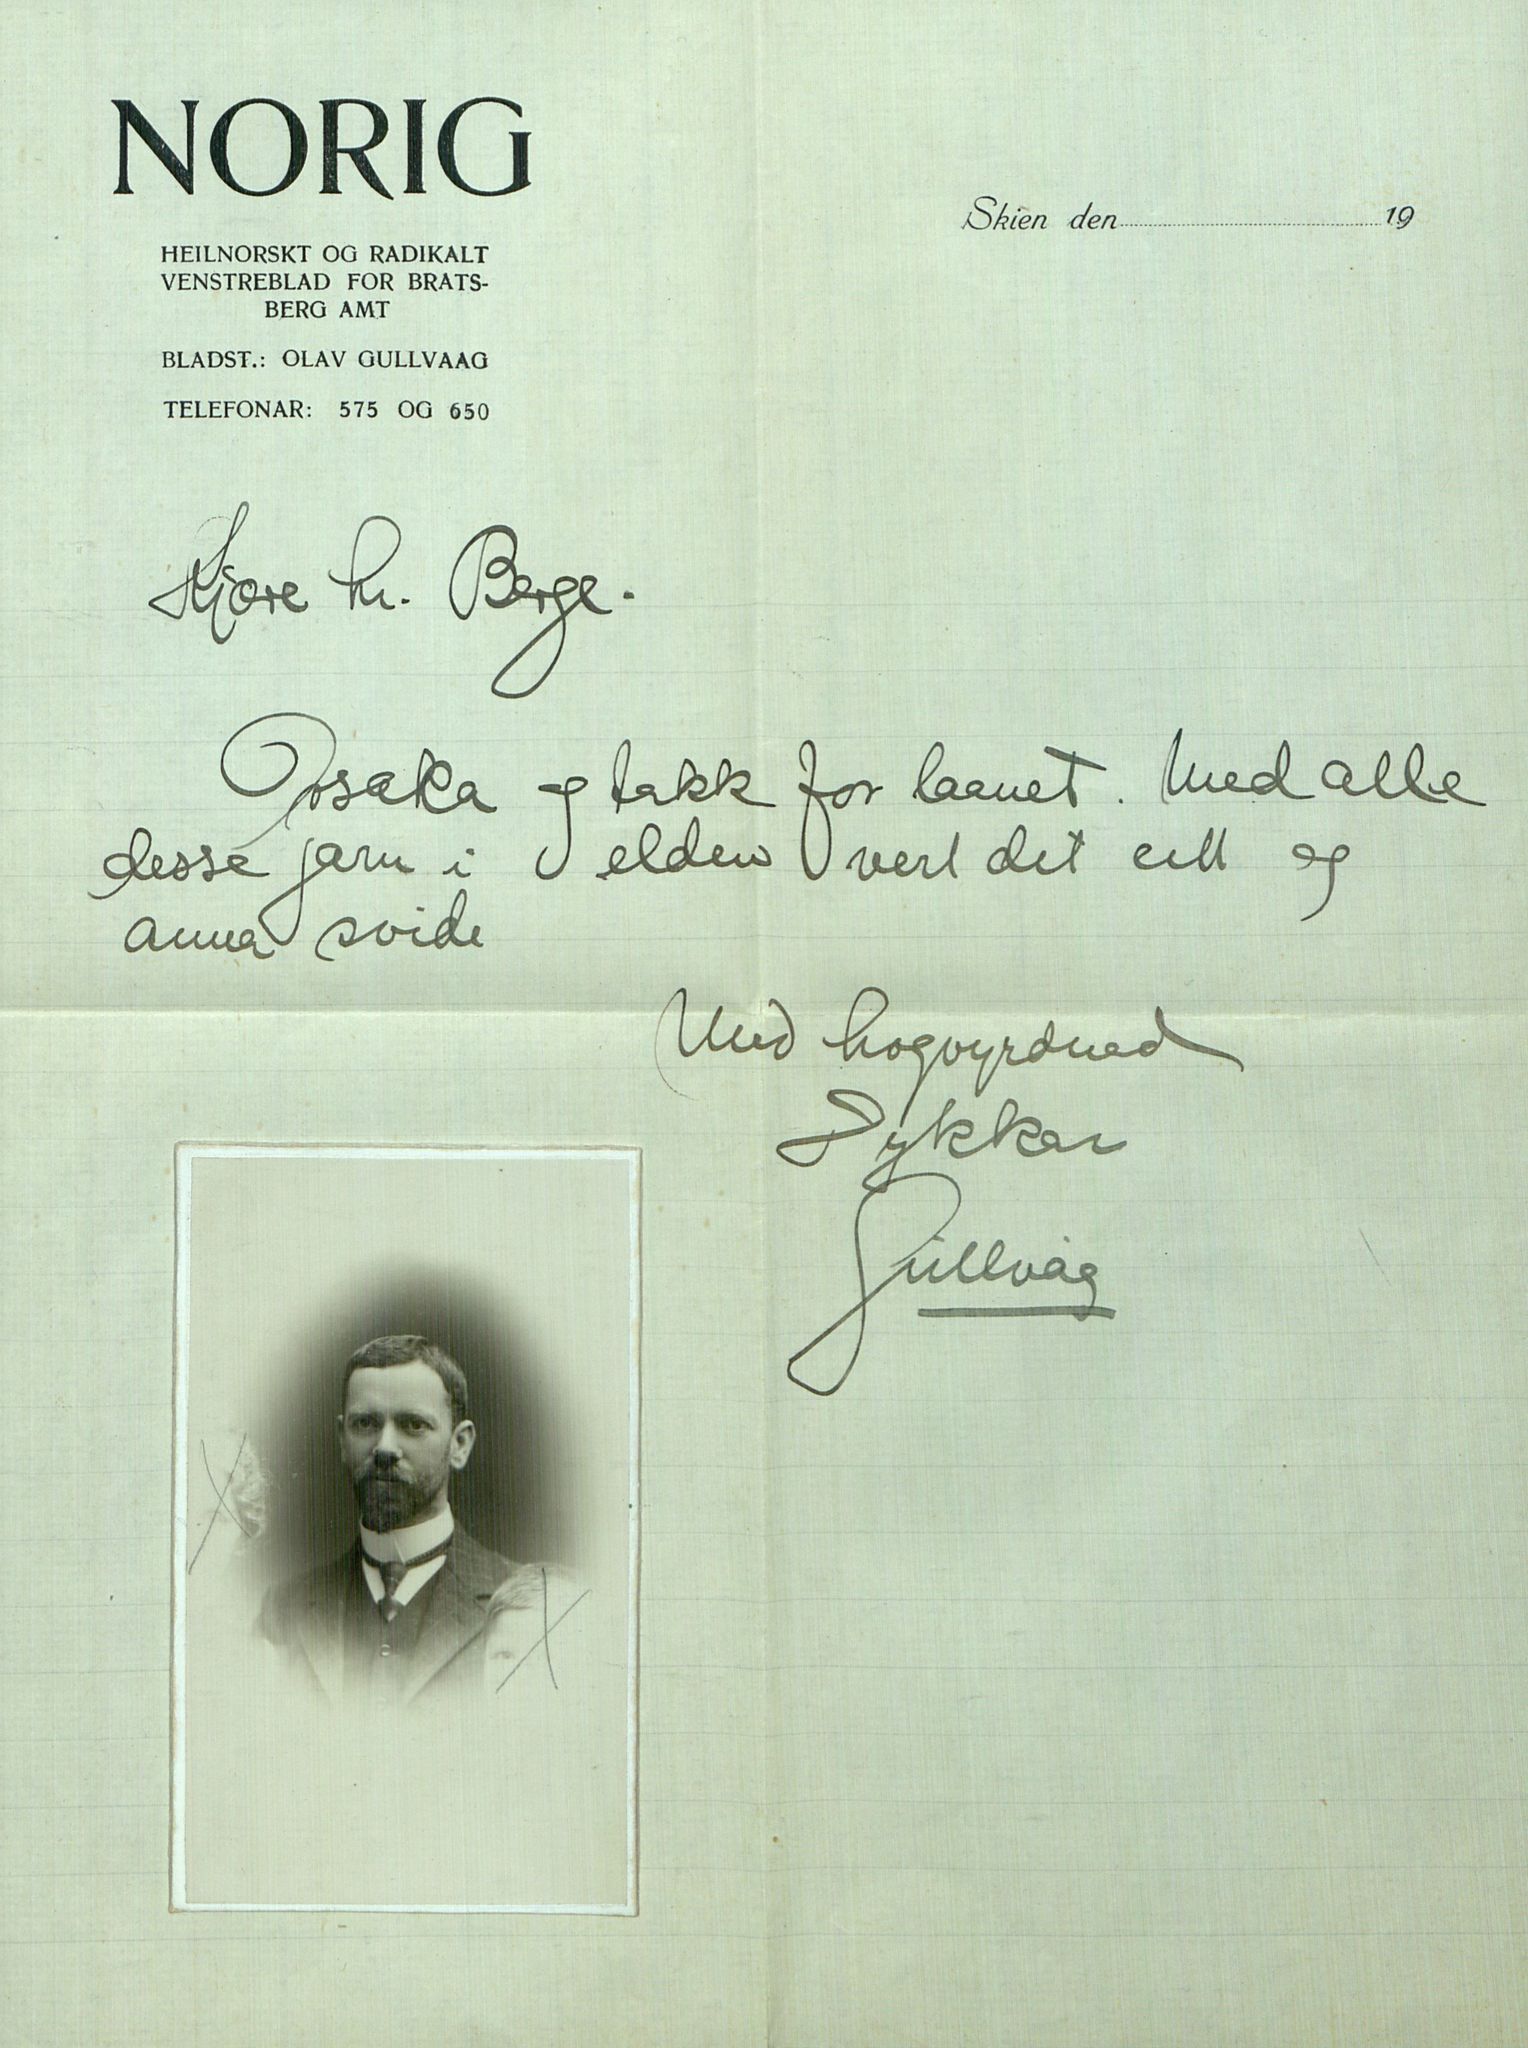 NORIG
HEILNORSKT OG RADIKALT
VENSTREBLAD FOR BRATS-
BERG AMT
BLADST.: OLAV GULLVAAG
TELEFONAR: 575 OG 650
Skien den 19
Kjære hr. Berge.
Orsaka og takk for laanet. Med alle
desse jarn i elden vert det eitt og
anna svide
Med høgvyrdnad
Dykkar
Gullvåg